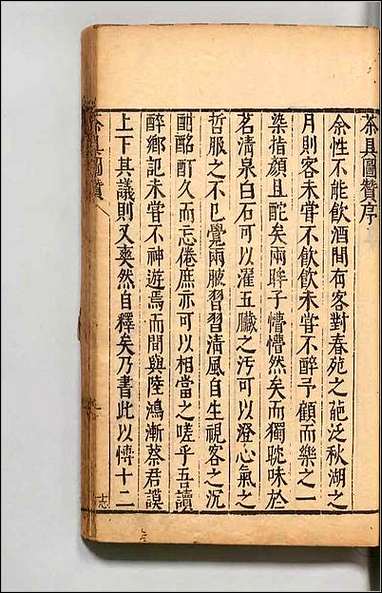 茶具圖贊序
余性不能飲酒間有客對春苑之葩泛秋湖之
月則客未嘗不飲飲未嘗不醉予顧而樂之一
染指顔且酡矣兩眸子懵懵然矣而獨耽味於
茗清泉白石可以濯五臟之汚可以澄心氣之
哲服之不已覺兩腋習習清風自生視客之沉
酣酩酊久而忘倦庶亦可以相當之嗟乎吾讀
醉鄉記未嘗不神遊焉而間與陸鴻漸蔡君謨
上下其議則又爽然自釋矣乃書此以傳十二
茶具圖贊